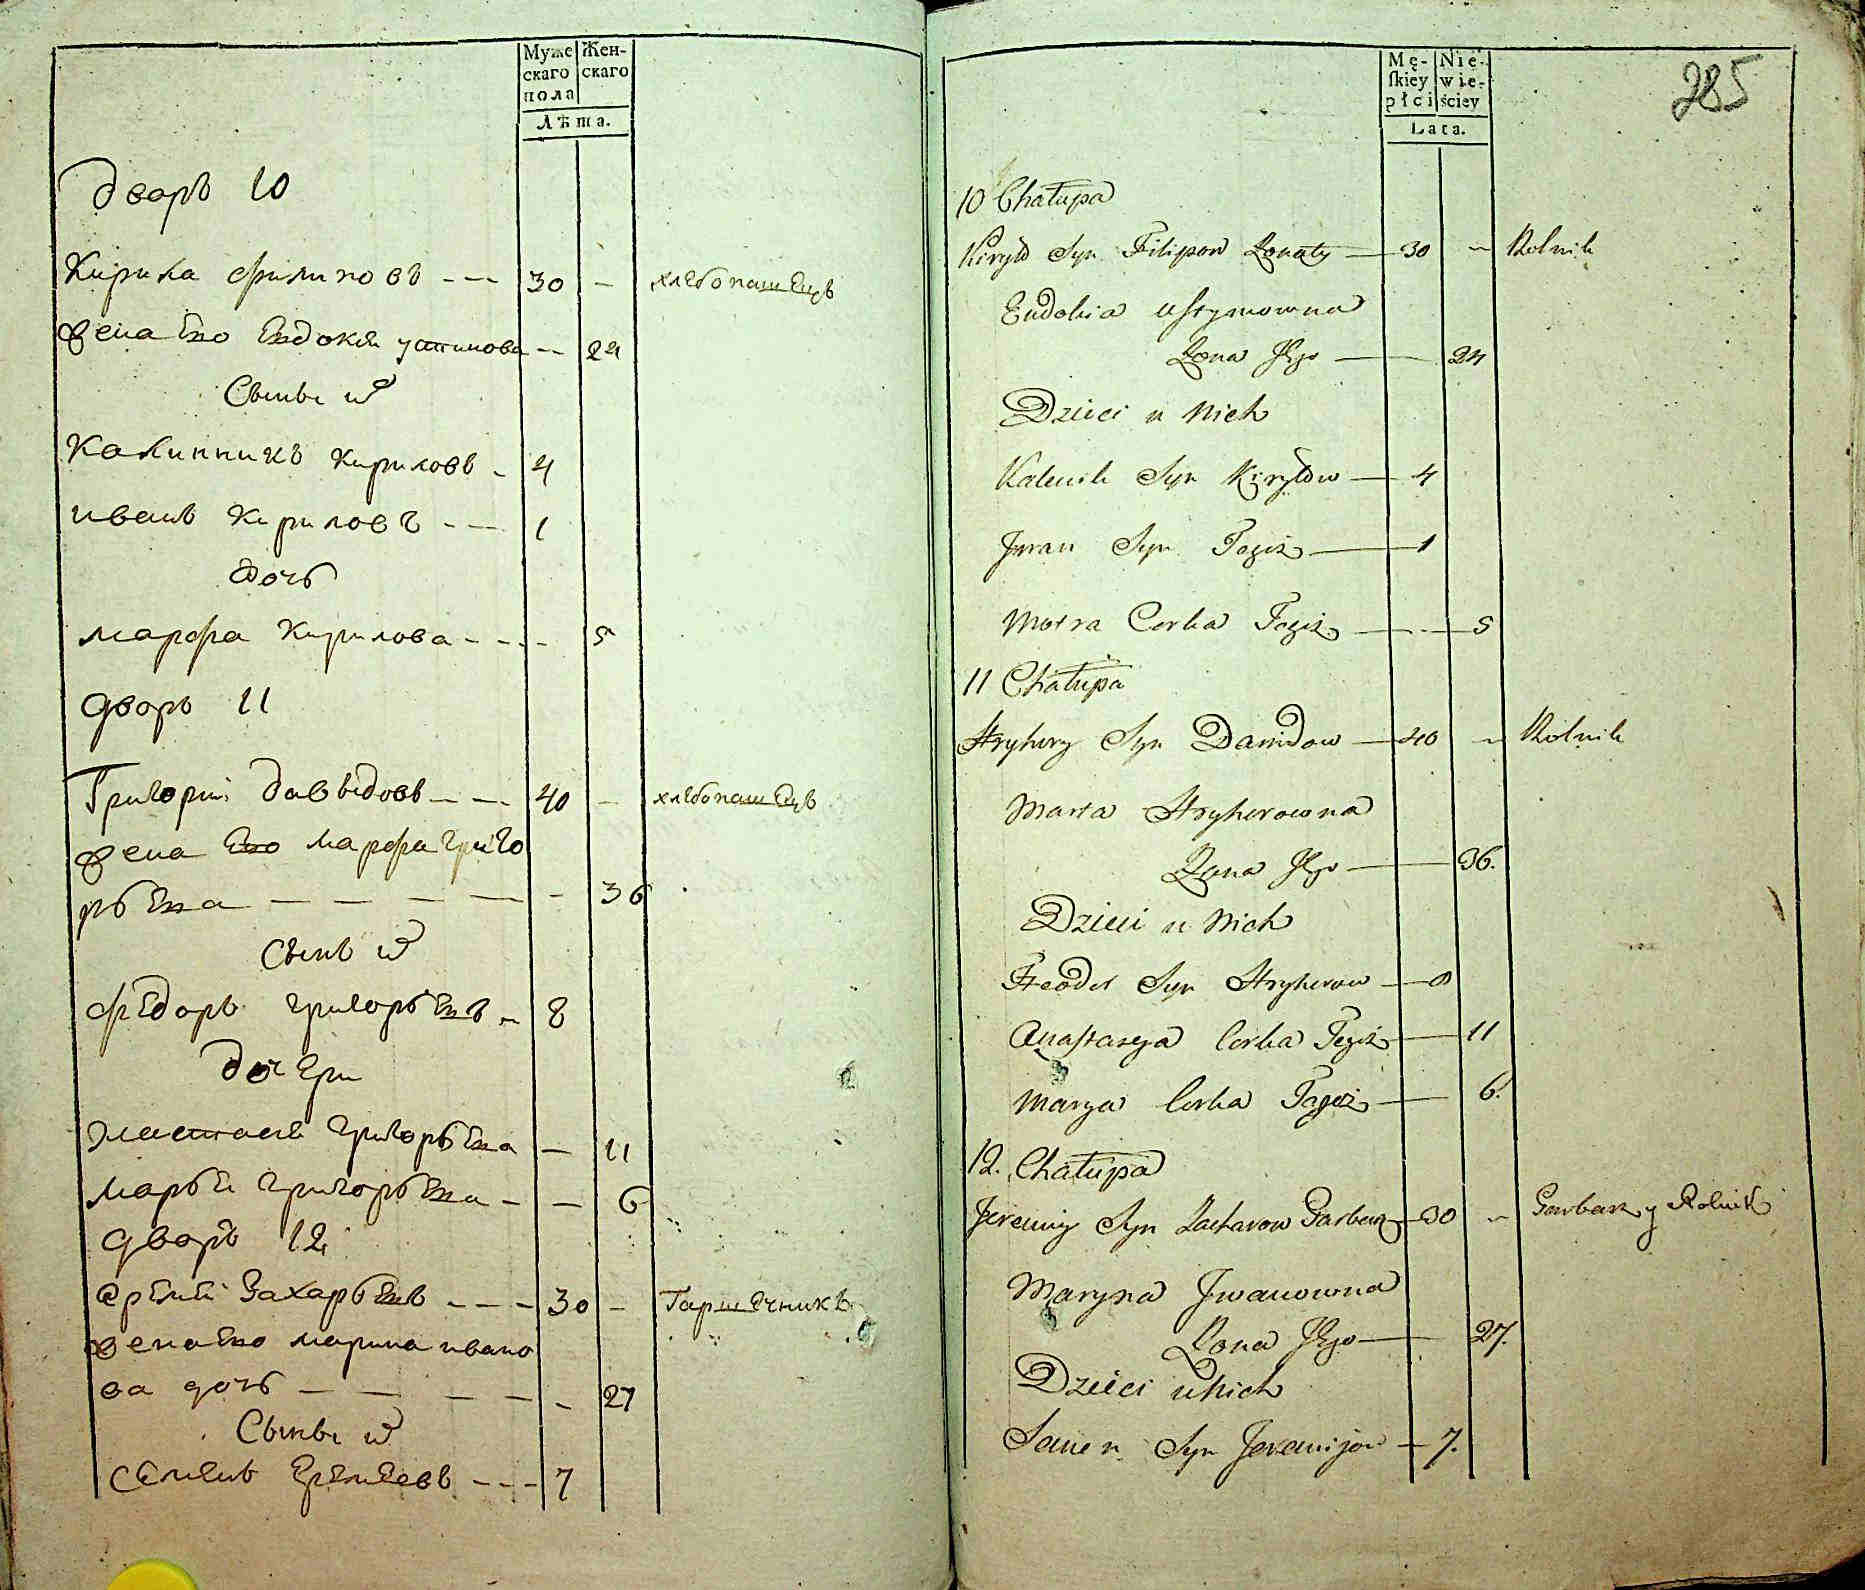 Муже
скаго
пола
Жен-
скаго
Лѣта.
дворъ 10
Кирила филиповъ --- 30 - хлебопашецъ
жена ево Евдокея устинова -- 24
Сыны ихъ
Калинникъ Кириловъ - 4
иванъ Кириловъ --- 1
дочь
марфа Кирилова ---- 5
дворъ 11
Григорий давыдовъ --- 40 - хлебопашецъ
жена ево марфа григо
рьева - - - - - 36
Сынъ ихъ
федоръ григорьевъ - 8
дочери
Настасея григорьева - 11
марья григорьева - - 6
дворъ 12
еремей Захарьевъ --- 30 - Гаршечникъ
жена ево марина ивано
ва дочь - - - - - 27
Сыны ихъ
семенъ Еремеевъ --- 7
Mę-
skiey
płci
Nie-
wie-
ściey
Lata.
285
10 Chałupa
Kiryło Syn Filipow — 30 - Rolnik
Eudokia Ustymowna
Żona Jego — 24
Dzieci u Nich
Kalenik Syn Kiryłow — 4
Jwan Syn Tegiż — 1
Motra Corka Tegiż — 5
11 Chałupa
Hryhory Syn Dawidow — 40 - Rolnik
Marta Hryhorowna
Żona Jego — 36.
Dzieci u Nich
Fteodor Syn Hryhorow — 8
Anastazya Corka Tegiż — 11
Marya Corka Tegoż — 6.
12. Chałupa
Jeremiy Syn Zacharow Garbarz — 30 - Garbarz y Rolnik
Maryna Jwanowna
Żona Jego — 27.
Dzieci u Nich
Semen Syn Jeremijow — 7.